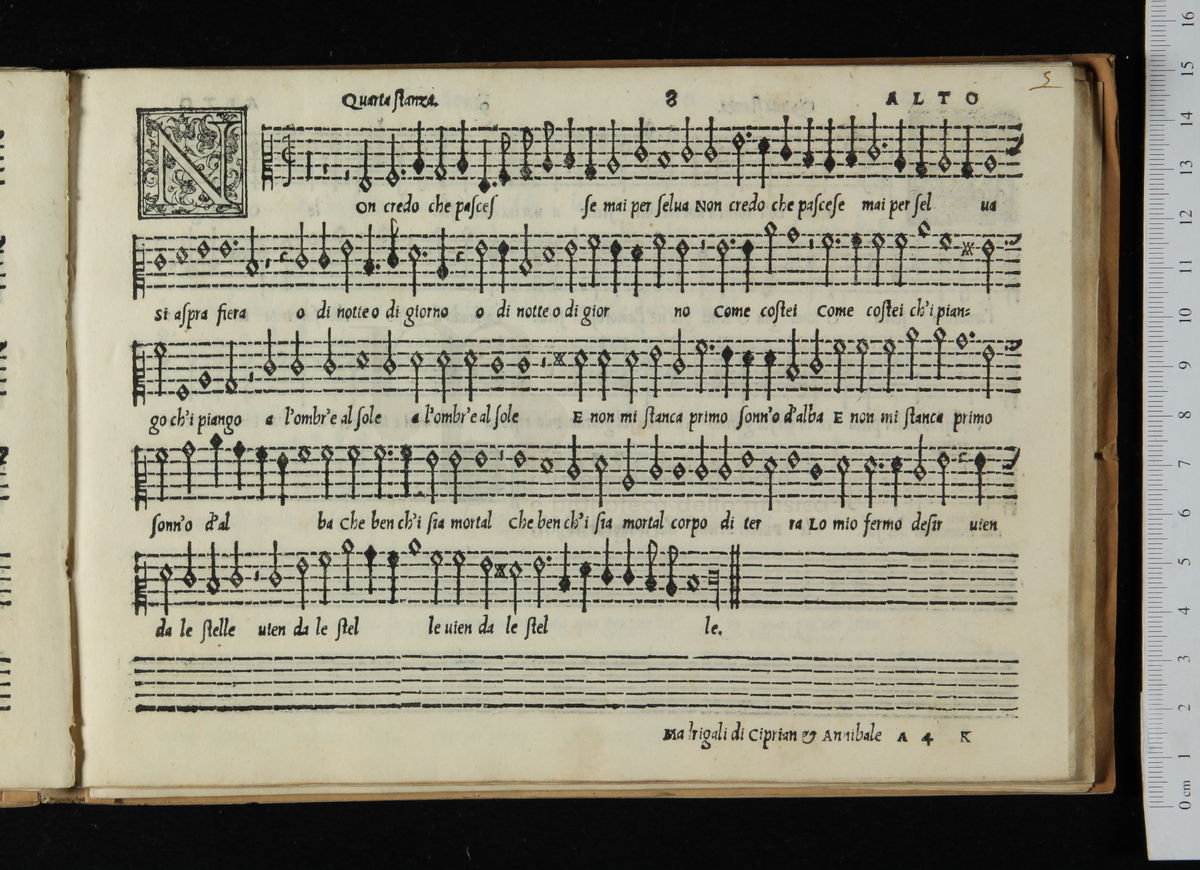 5
Quarta stanza. 8 ALTO
NOn credo che pasces se mai per selua Non credo che pascese mai per sel ua
si aspra fiera o di notte o di giorno o di notte o di gior no Come costei Come costei ch'i pian=
go ch'i piango a l'ombr'e al sole a l'ombr'e al sole E non mi stanca primo sonn'o d'alba E non mi stanca primo
sonn'o d'al ba Che ben ch'i sia mortal Che ben ch'i sia mortal corpo di ter ra Lo mio fermo desir uien
da le stelle uien da le stel le uien da le stel le.
Madrigali di Ciprian & Annibale A 4 K
16
15
14
13
12
11
10
9
8
7
6
5
4
3
2
1
0 cm